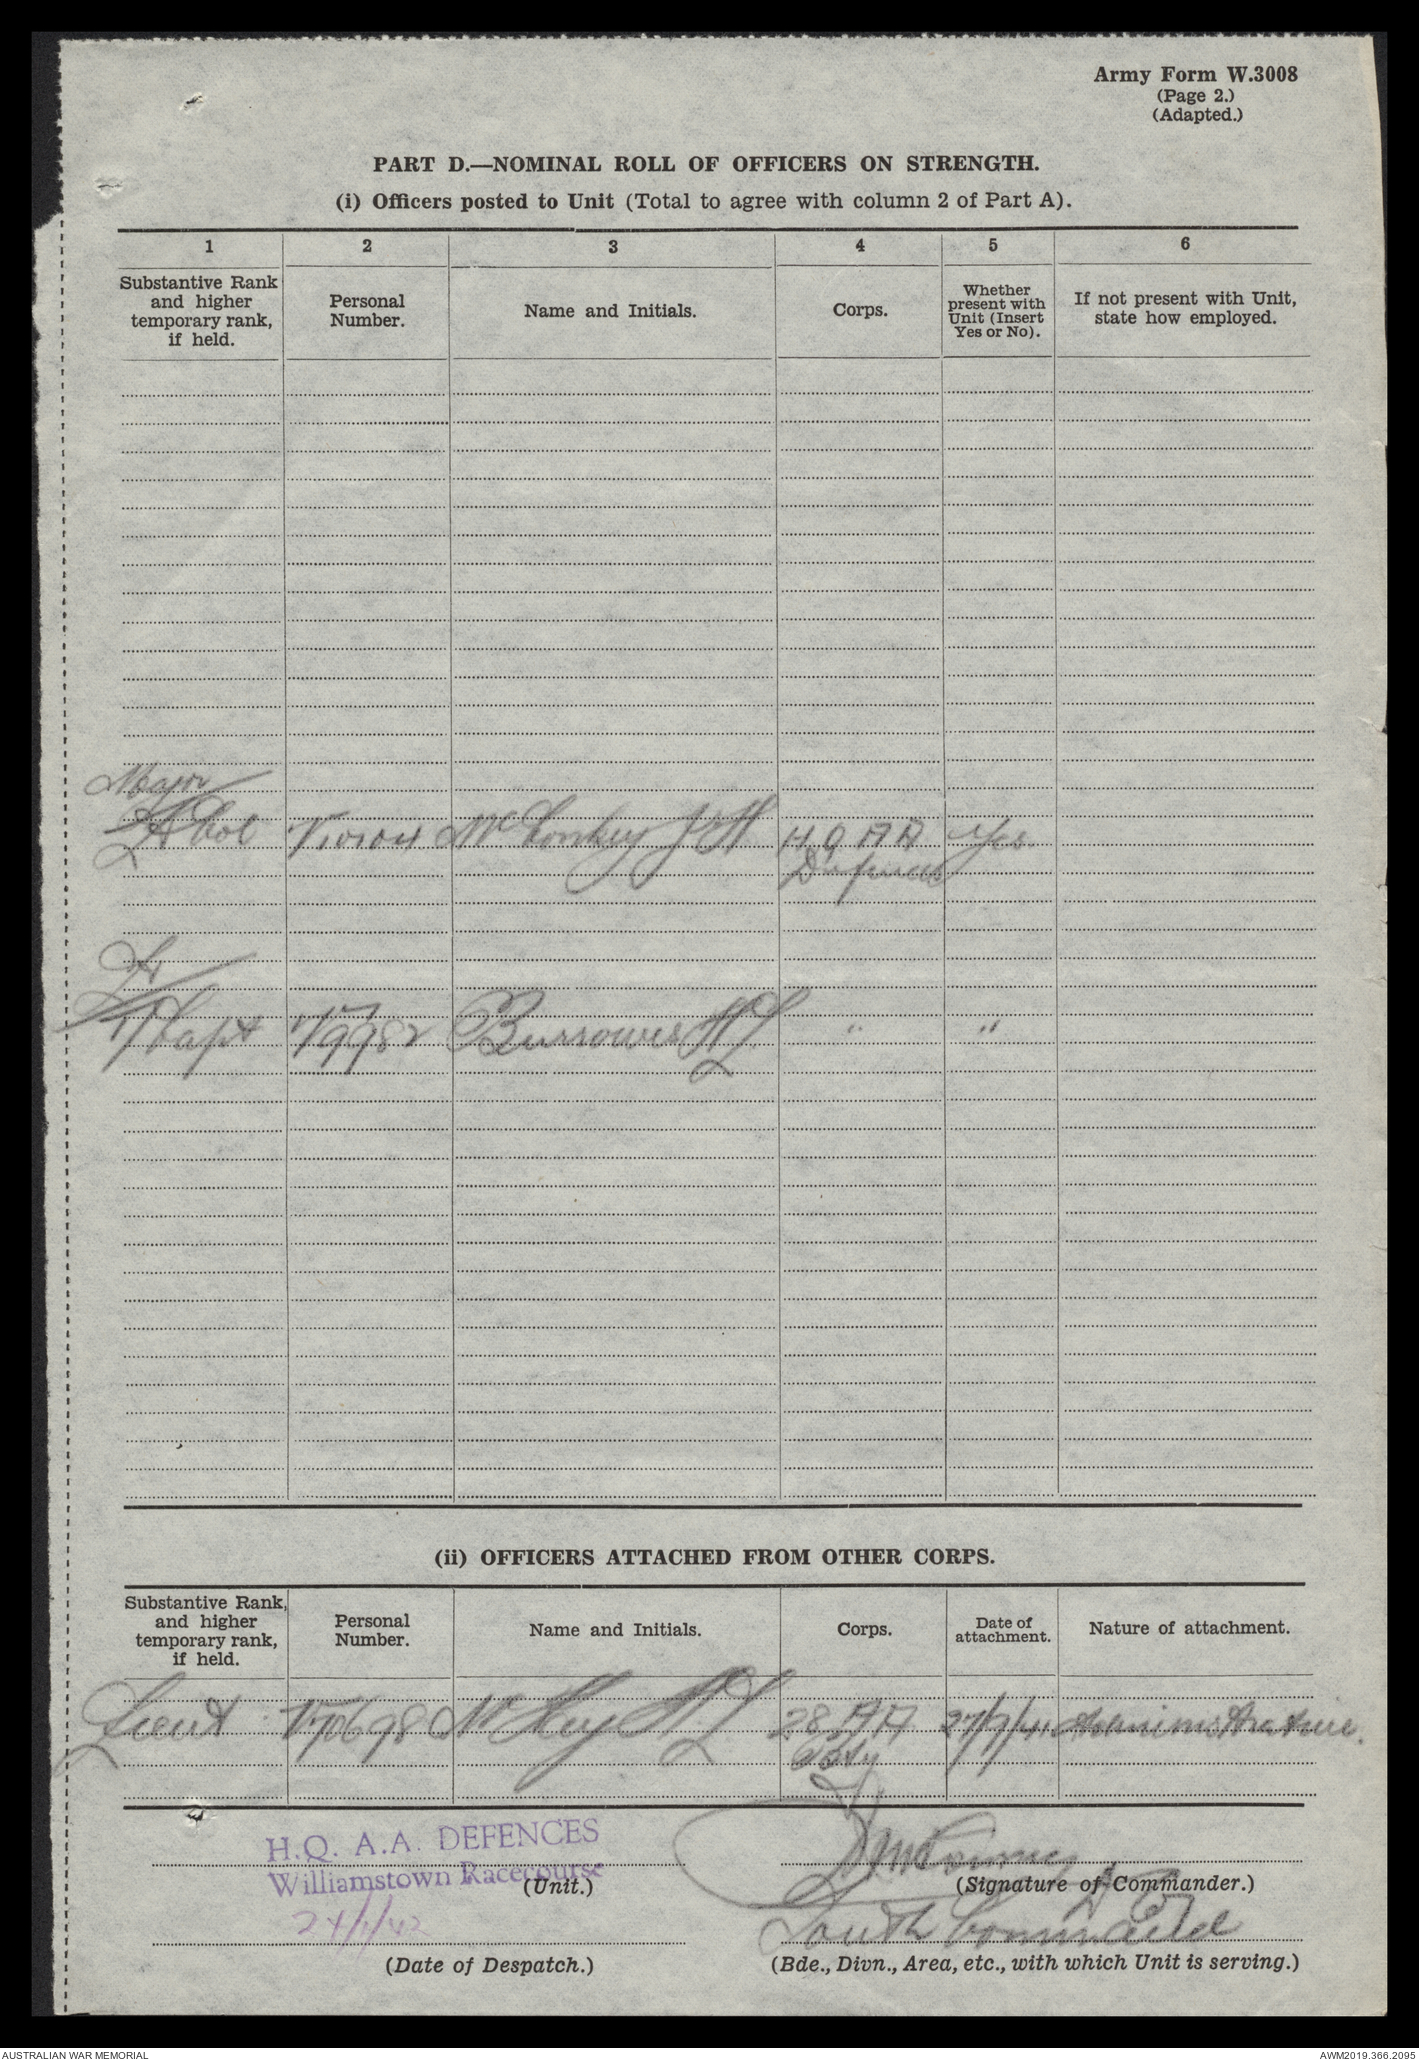 Army Form W.3008
(Page 2.)
(Adapted.)
PART D.—NOMINAL ROLL OF OFFICERS ON STRENGTH.
(i) Officers posted to Unit (Total to agree with column 2 of Part A).
1 2 3 4 5 6
Substantive Rank and higher temporary rank, if held.
Personal Number.
Name and Initials.
Corps.
Whether present with Unit (Insert Yes or No).
If not present with Unit, state how employed.
Major
Col Mc J H H.Q A A Yes.
Defences
Lt
T/Capt V9982 Burrowes H L " "
(ii) OFFICERS ATTACHED FROM OTHER CORPS.
Substantive Rank, and higher temporary rank, if held.
Personal Number.
Name and Initials.
Corps.
Date of attachment.
Nature of attachment.
Lieut 28 AA 27/7/41 Administrative.
H.Q. A.A. DEFENCES
Williamstown Racecourse
(Unit.)
(Signature of Commander.)
South Command
(Date of Despatch.)
(Bde., Divn., Area, etc., with which Unit is serving.)
AUSTRALIAN WAR MEMORIAL
AWM2019.366.2095